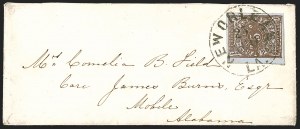 NEW ORLEANS
LA.
Mrs Cornelia B. Field
Care James Burns, Esqr
Mobile
Alabama